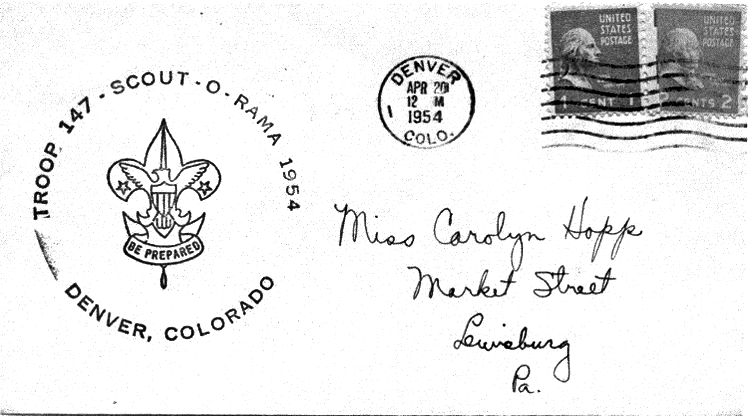 TROOP 147-SCOUT-O-RAMA 1954
BE PREPARED
DENVER, COLORADO
DENVER
APR 20
12 M
1
1954
COLO.
UNITED
STATES
POSTAGE
1 CENT 1
UNITED
STATES
POSTAGE
2 CENTS 2
Miss Carolyn Hopp
Market Street
Lewisburg
Pa.